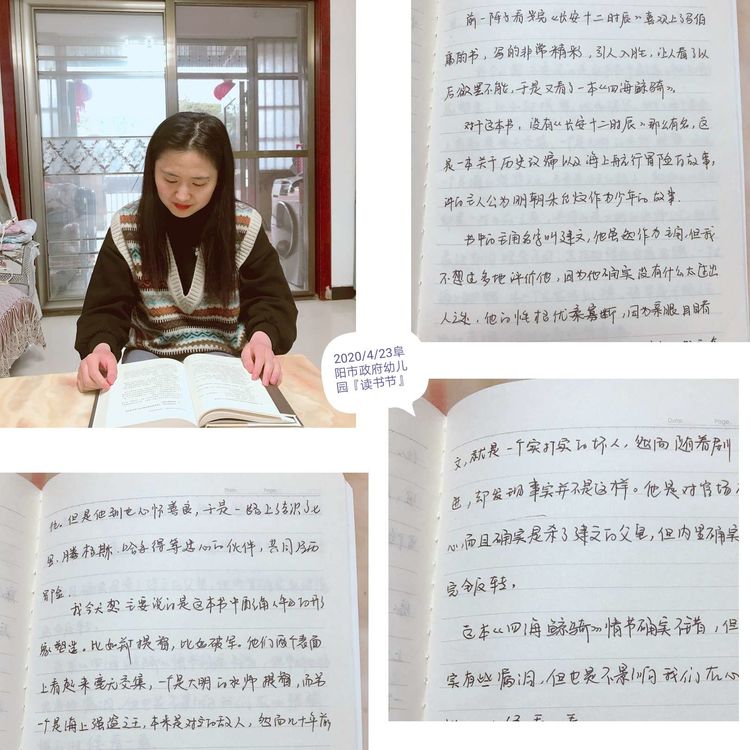 前一阵子看完《长安十二时辰》喜欢上了马伯
庸的书，写的非常精彩，引人入胜，让人看了以
后欲罢不能，于是又看了一本《四海鲸骑》。
对于这本书，没有《长安十二时辰》那么有名，这
是一本关于历史 以及海上航行冒险的故事，
讲的主人公为明朝朱允炆作为少年的故事.
书中的主角名字叫建文，他虽然作为主角，但我
不想过多地评价他，因为他确实没有什么太过出
人之处，他的性格优柔寡断，因为亲眼目睹
2020/4/23阜
阳市政府幼儿
园『读书节』
他，但是他到也心怀善良，于是一路上结识了七
里、腾格斯、哈罗德等连心的伙伴，共同历
冒险
我今天想主要谈的是这本书中配角人物的形
象塑造。比如 提督，比如破军。他们两个表面
上看起来毫无交集，一个是大明的水师提督，而另
一个是海上强盗之主，本来是对立的敌人，然而几十年前
文，就是一个实打实的坏人，然而随着剧
进，却发现事实并不是这样。他是对官场
心，而且确实是杀了建文的父皇，但内里确实
完全反转。
这本《四海鲸骑》情书确实不错，但
实有些漏洞，但也是不影响我们在心